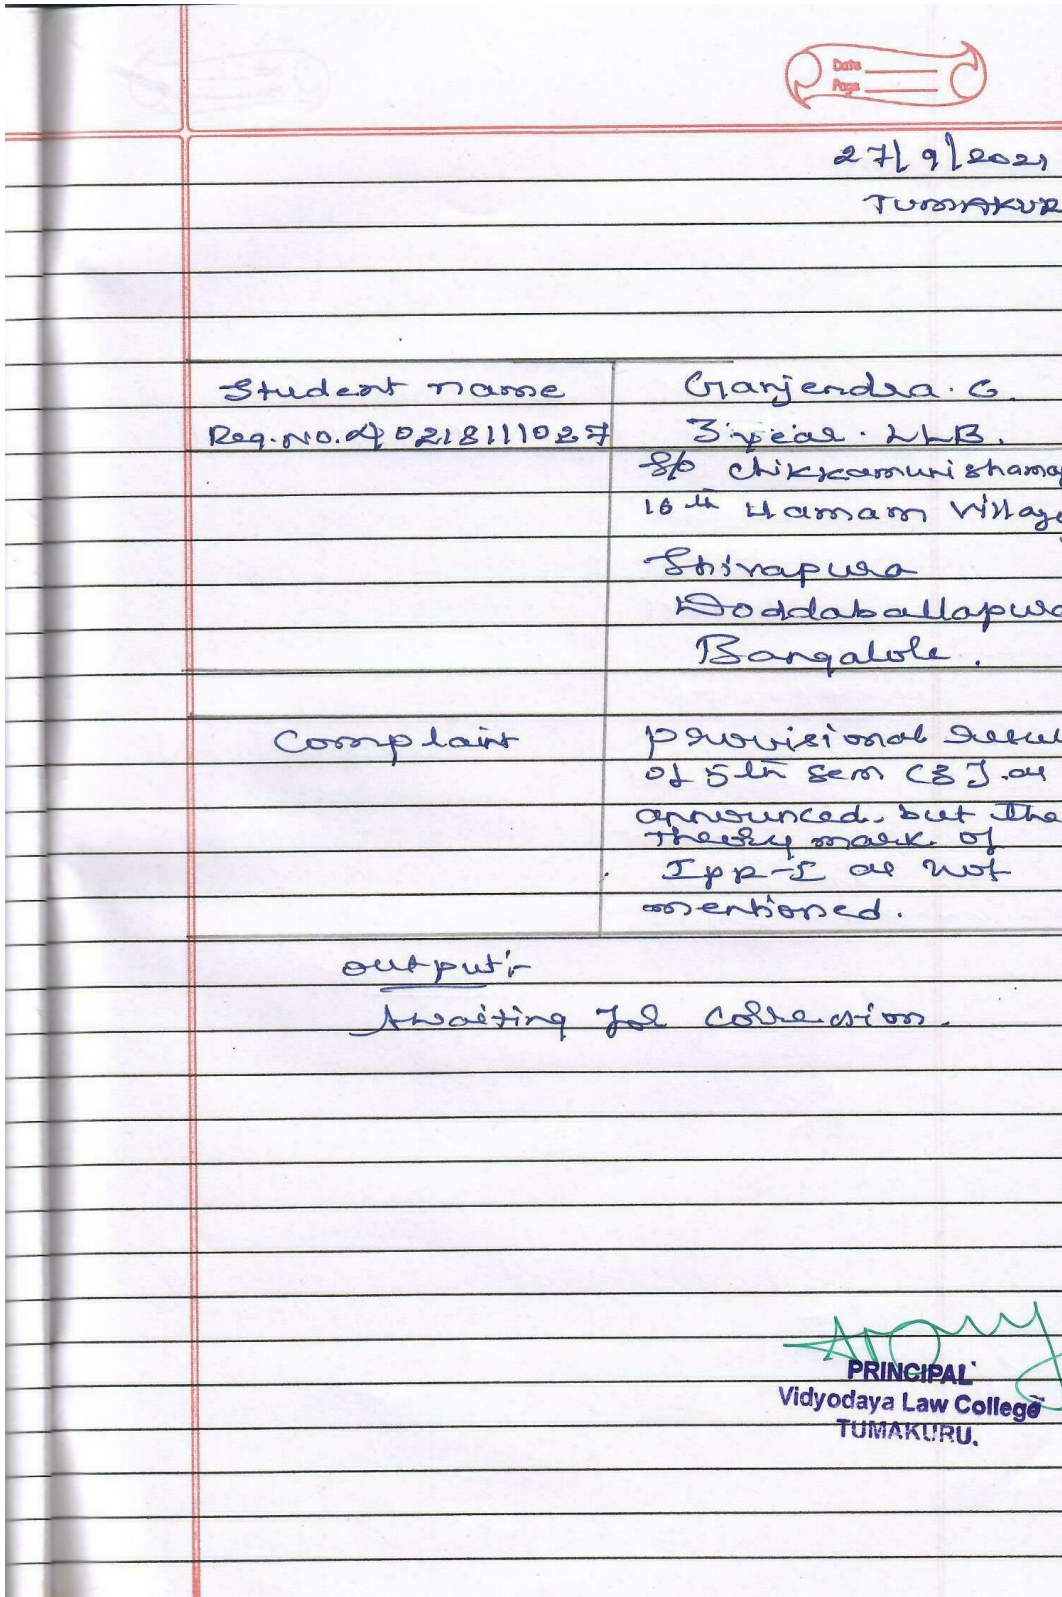 Date
Page
27/9/2021
TUMAKUR
Student name
Ganjendra. G.
Reg. No. 40218111027
3 year. LLB.
S/o Chikkamunishama
16th Hamam Village
Shivapura
Doddaballapura
Bangalore.
Complaint
provisional Resul
of 5th Sem (3) are
announced. but The
theory mark of
IPR-I are not
mentioned.
output:-
Awaiting for Correction.
PRINCIPAL
Vidyodaya Law College
TUMAKURU.